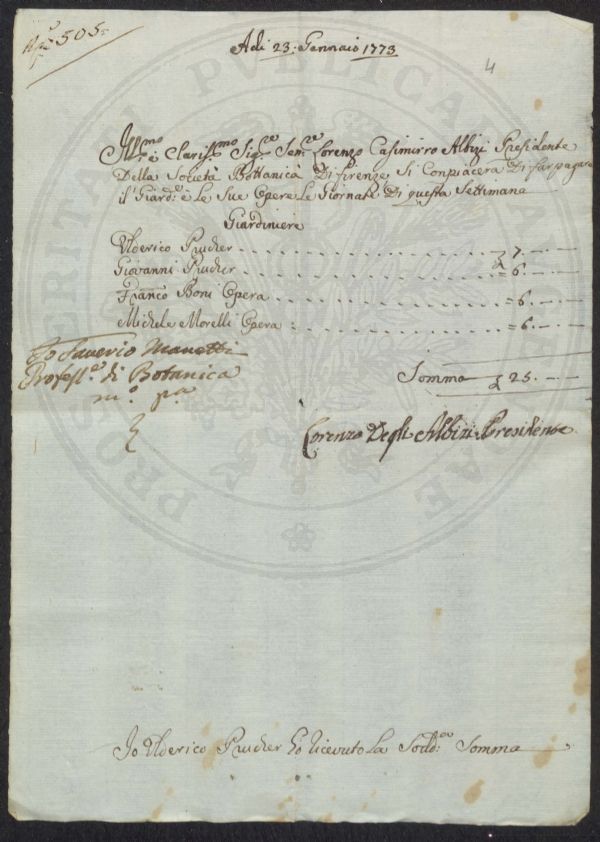 N° 505
Adi 23: Gennaio 1773
4
Ill:mo è Clariss:mo Sig:re Sen:re Lorenzo Casimirro Albizi Presidente
Della Società Bottanica Di Firenze Si Conpiacerà Di far pagare
il Giard:e è Le Sue Opere Le Giornate Di questa Settimana
Giardiniere
Ulderico Prucher 7.
Giovanni Prucher =6.
Franco Boni Opera =6.
Michele Morelli Opera =6.
Somma 25.
Io Saverio Manetti
Profess:e di Botanica
m:o pa
Lorenzo Degli Albizi Presidente
Io Ulderico Prucher ho ricevuto La Sodd:a Somma
PROSPERITATI PUBLICAE